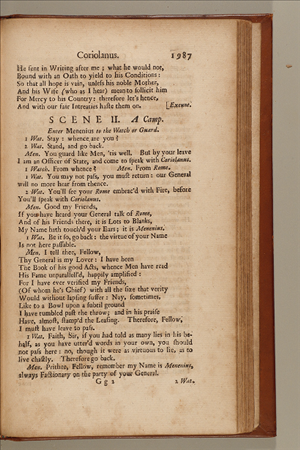 Coriolanus. 1987
He sent in Writing after me; what he would not,
Bound with an Oath to yield to his Conditions:
So that all hope is vain, unless his noble Mother,
And his Wife (who as I hear) mean to sollicit him
For Mercy to his Country: therefore let's hence,
And with our fair Intreaties haste them on. [Exeunt.
SCENE II. A Camp.
Enter Menenius to the Watch or Guard.
1 Wat. Stay: whence are you?
2 Wat. Stand, and go back.
Men. You guard like Men, 'tis well. But by your leave
I am an Officer of State, and come to speak with Coriolanus.
1 Watch. From whence? Men. From Rome.
1 Wat. You may not pass, you must return: our General
will no more hear from thence.
2 Wat. You'll see your Rome embrac'd with Fire, before
You'll speak with Coriolanus.
Men. Good my Friends,
If you have heard your General talk of Rome,
And of his Friends there, it is Lots to Blanks,
My Name hath touch'd your Ears; it is Menenius.
1 Wat. Be it so, go back: the virtue of your Name
Is not here passable.
Men. I tell thee, Fellow,
Thy General is my Lover: I have been
The Book of his good Acts, whence Men have read
His Fame unparallell'd, happily amplified:
For I have ever verified my Friends,
(Of whom he's Chief) with all the size that verity
Would without lapsing suffer: Nay, sometimes,
Like to a Bowl upon a subtil ground
I have tumbled past the throw; and in his praise
Have, almost, stamp'd the Leasing. Therefore, Fellow,
I must have leave to pass.
1 Wat. Faith, Sir, if you had told as many lies in his be-
half, as you have utter'd words in your own, you should
not pass here: no, though it were as virtuous to lie, as to
live chastly. Therefore go back.
Men. Prithee, Fellow, remember my Name is Menenius,
always Factionary on the party of your General.
G g 2 2 Wat.